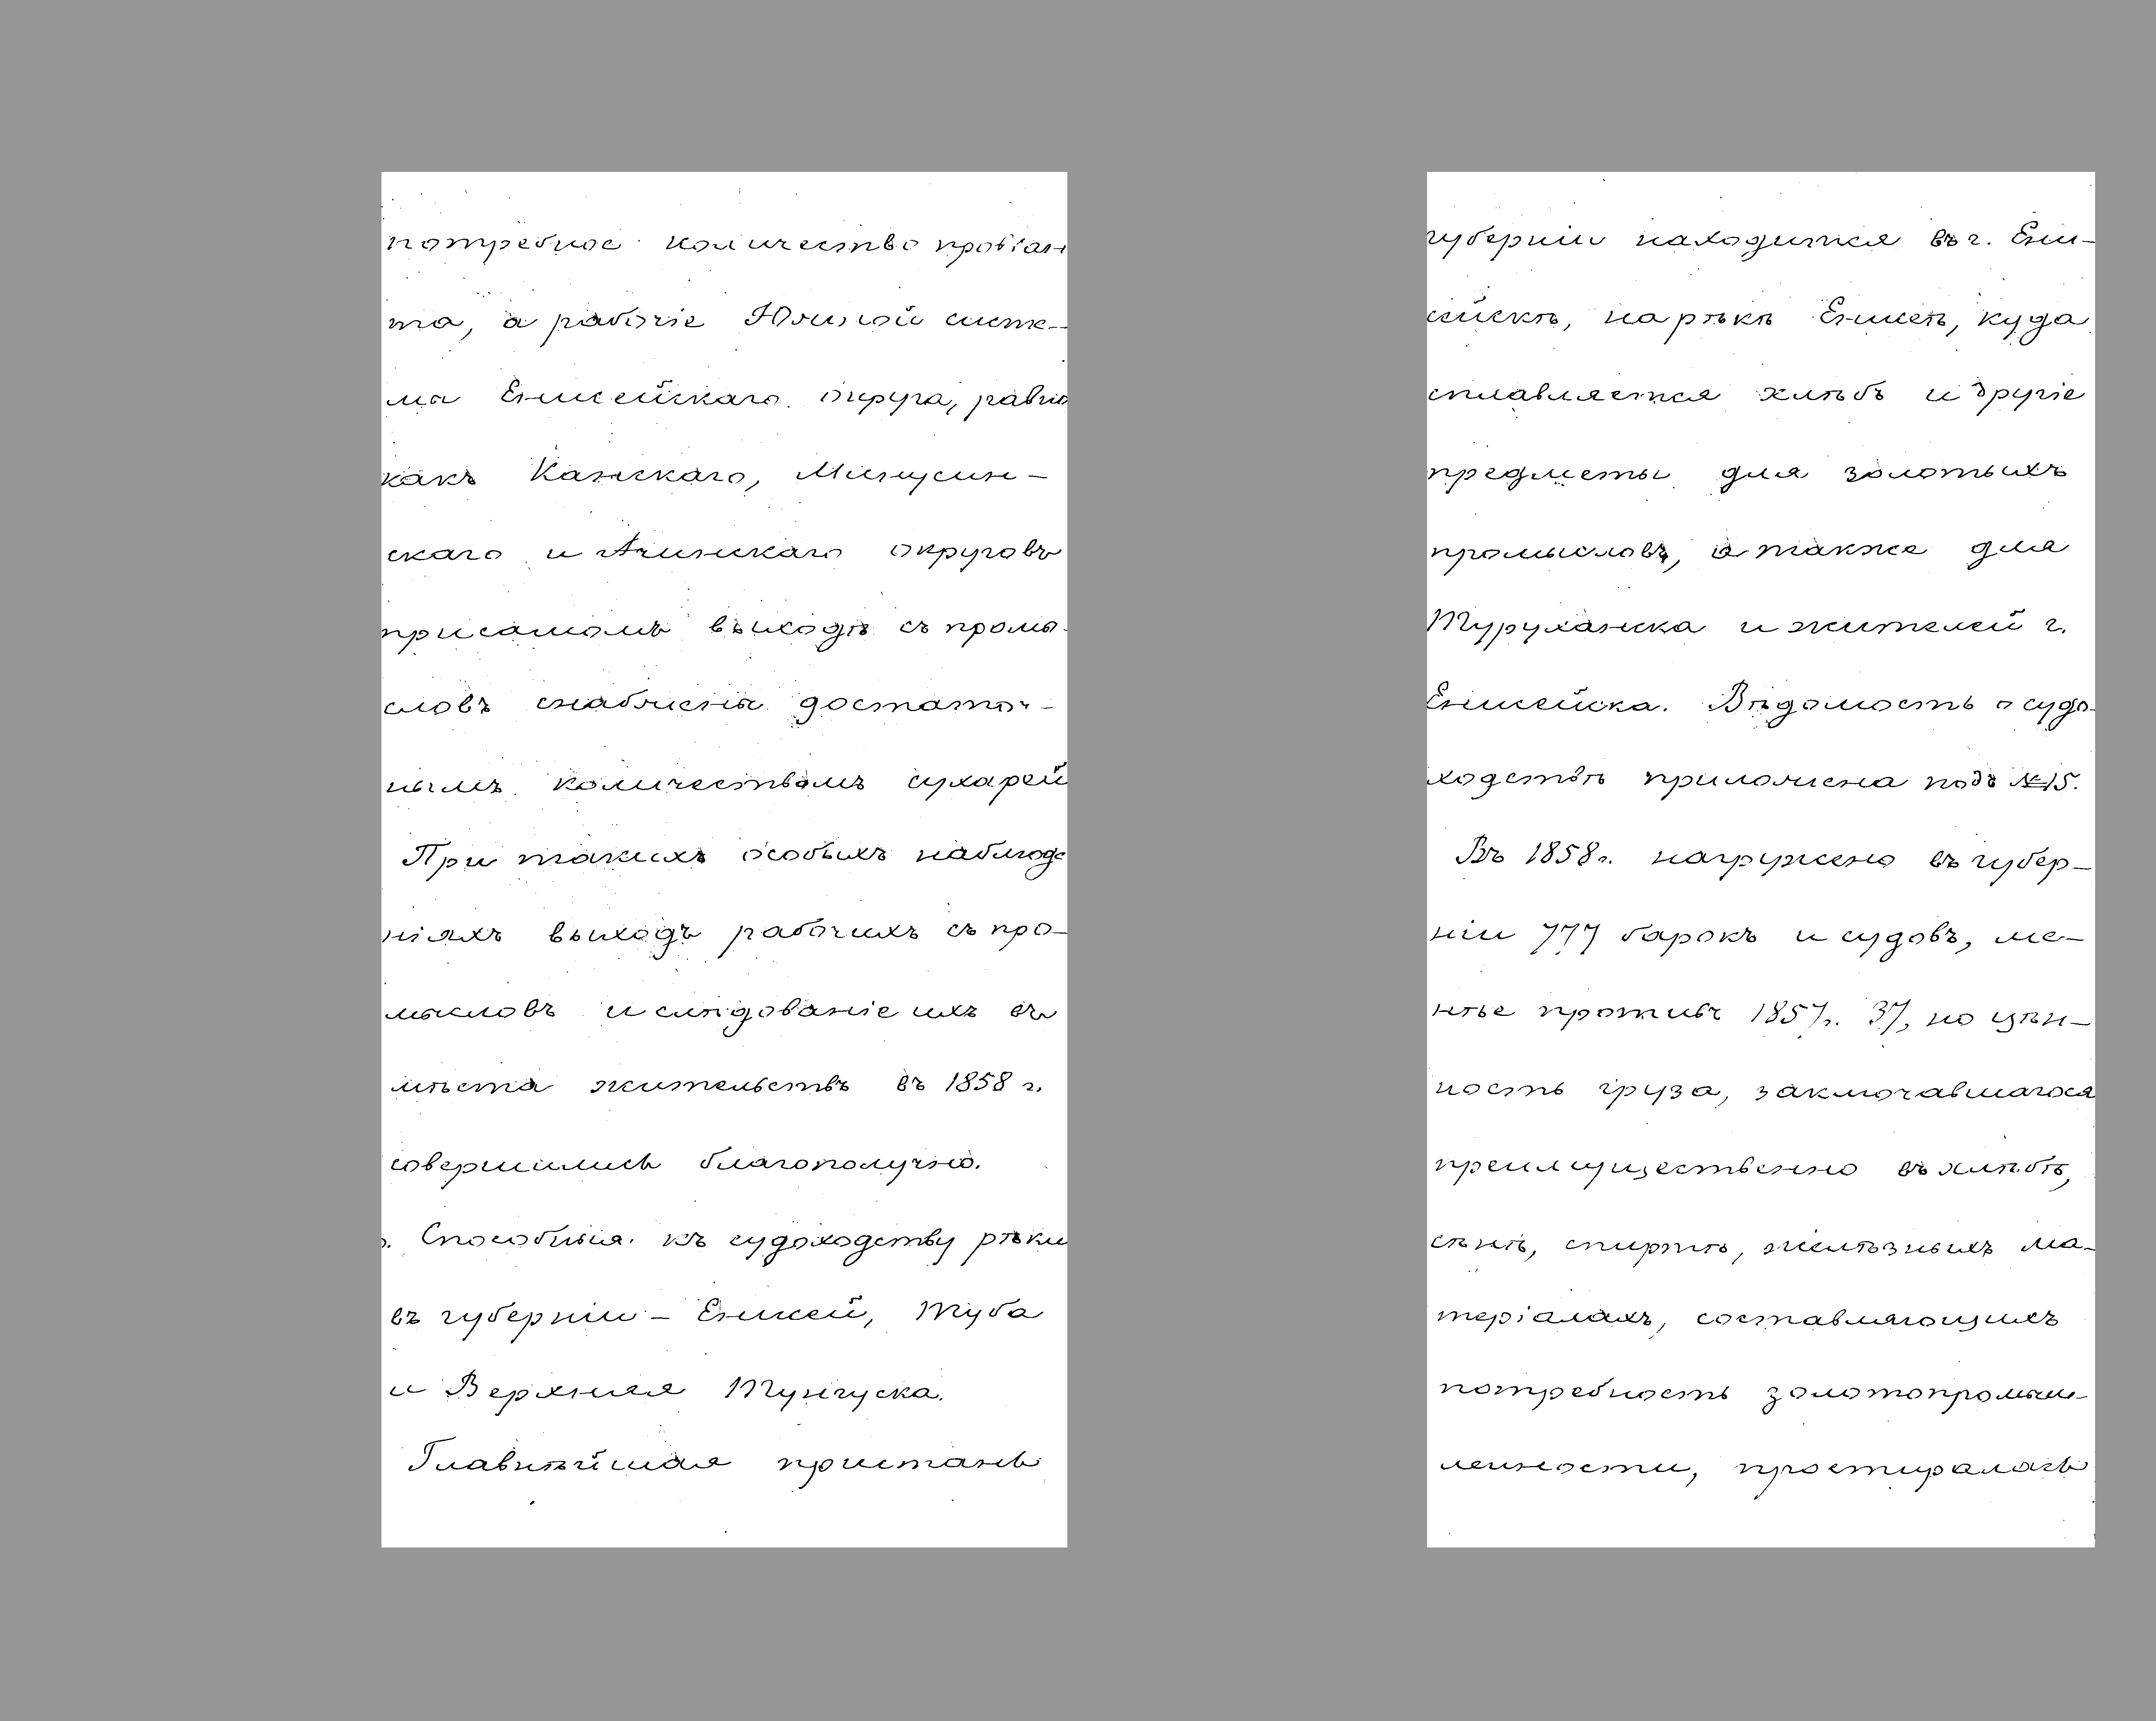 потребное количество провіан
та, а рабочіе Южной систе-
мы Енисейскаго округа, равно
какъ Канскаго, Минусин-
скаго и Ачинскаго округовъ
при самомъ выходѣ съ промы-
словъ снабжены достаточ-
нымъ количествомъ сухарей
При такихъ особыхъ наблюде
ніяхъ выходъ рабочихъ съ про-
мысловъ и слѣдованіе ихъ въ
мѣста жительствъ въ 1858 г.
совершились благополучно.
Способныя къ судоходству рѣки
въ губерніи - Енисей, Туба
и Верхняя Тунгуска.
Главнѣйшая пристань
губерніи находится въ г. Ени-
сейскѣ, на рѣкѣ Енисеѣ, куда
сплавляется хлѣбъ и другіе
предметы для золотыхъ
промысловъ, а также для
Туруханска и жителей г.
Енисейска. Вѣдомость о судо-
ходствѣ приложена подъ №15.
Въ 1858 г. нагружено въ губер-
ніи 777 барокъ и судовъ, ме-
нѣе противъ 1857 г. 37, но цѣн-
ность груза, заключавшагося
преимущественно въ хлѣбѣ,
сѣнѣ, спиртѣ, желѣзныхъ ма-
теріалахъ, составляющихъ
потребность золотопромыш-
ленности, простиралась